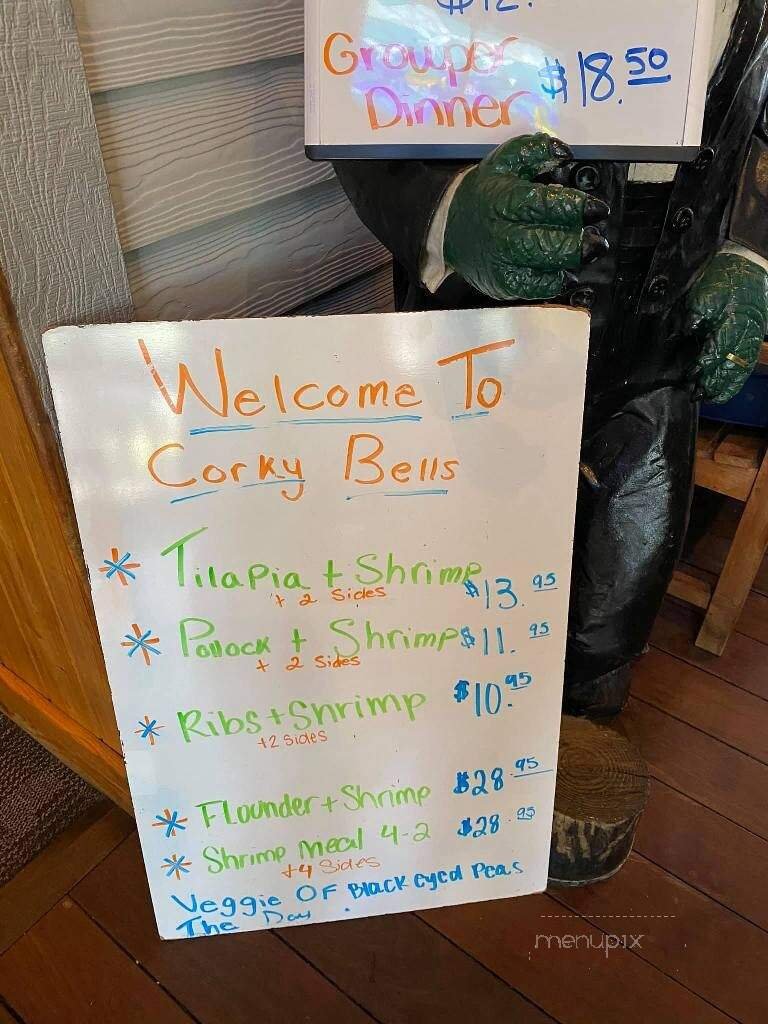 $12.
Grouper $18.50
Dinner
Welcome To
Corky Bells
* Tilapia + Shrimp $13.95
+ 2 Sides
* Pollock + Shrimp $11.95
+ 2 Sides
* Ribs + Shrimp $10.95
+2 Sides
* Flounder + Shrimp $28.95
* Shrimp Meal 4-2 $28.95
+4 Sides
Veggie OF Black eyed Peas
The Day .
menupix